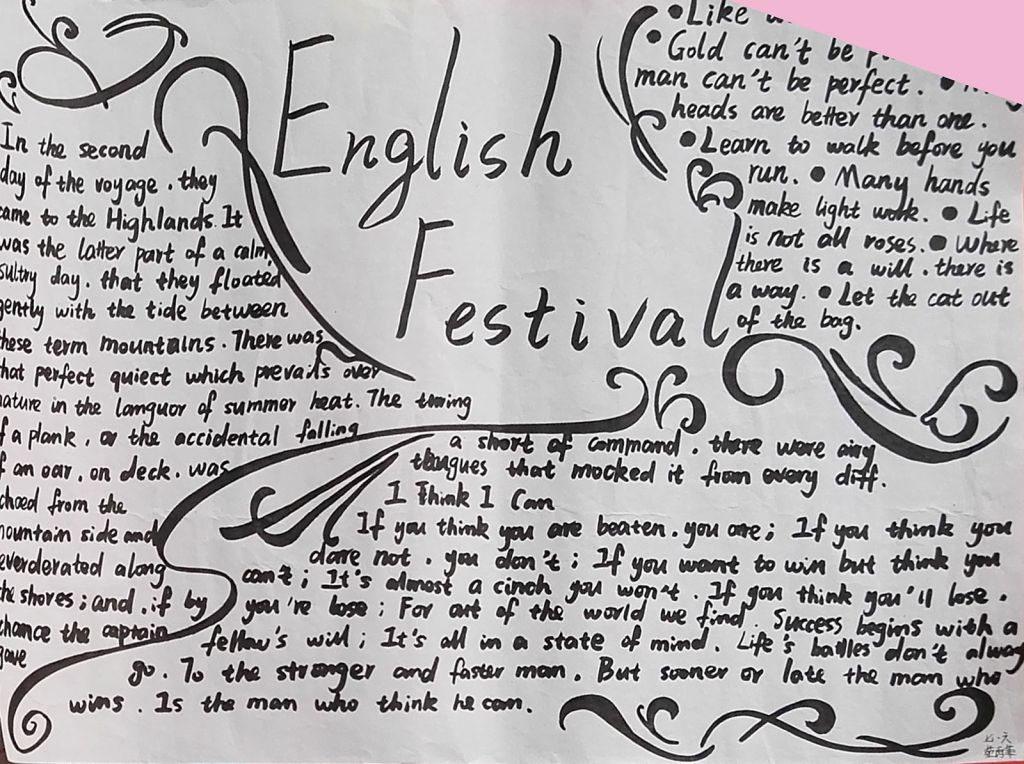 English
Festival
In the second
day of the voyage. they
came to the Highlands. It
was the latter part of a calm,
sultry day. that they floated
gently with the tide between
these term mountains. There was
that perfect quiect which prevails over
nature in the languor of summer heat. The
of a plank, or the accidental falling
of an oar, on deck. was
choed from the
mountain side and
everderated along
the shores; and, if by
chance the captain
gave
a short of command. there were airy
that mocked it from every diff.
I Think I Can
If you think you are beaten. you are; If you think you
dare not. you don't; If you want to win but think you
can't; It's almost a cinch you won't. If you think you'll lose.
you're lose; For out of the world we find. Success begins with a
fellow's will; It's all in a state of mind. Life's battles don't alway
go. To the stronger and faster man. But sooner or late the man who
wins. Is the man who think he can.
• Like
• Gold can't be
man can't be perfect. •
heads are better than one.
• Learn to walk before you
run. • Many hands
make light work. • Life
is not all roses. • Where
there is a will. there is
a way. • Let the cat out
of the bag.
七·六